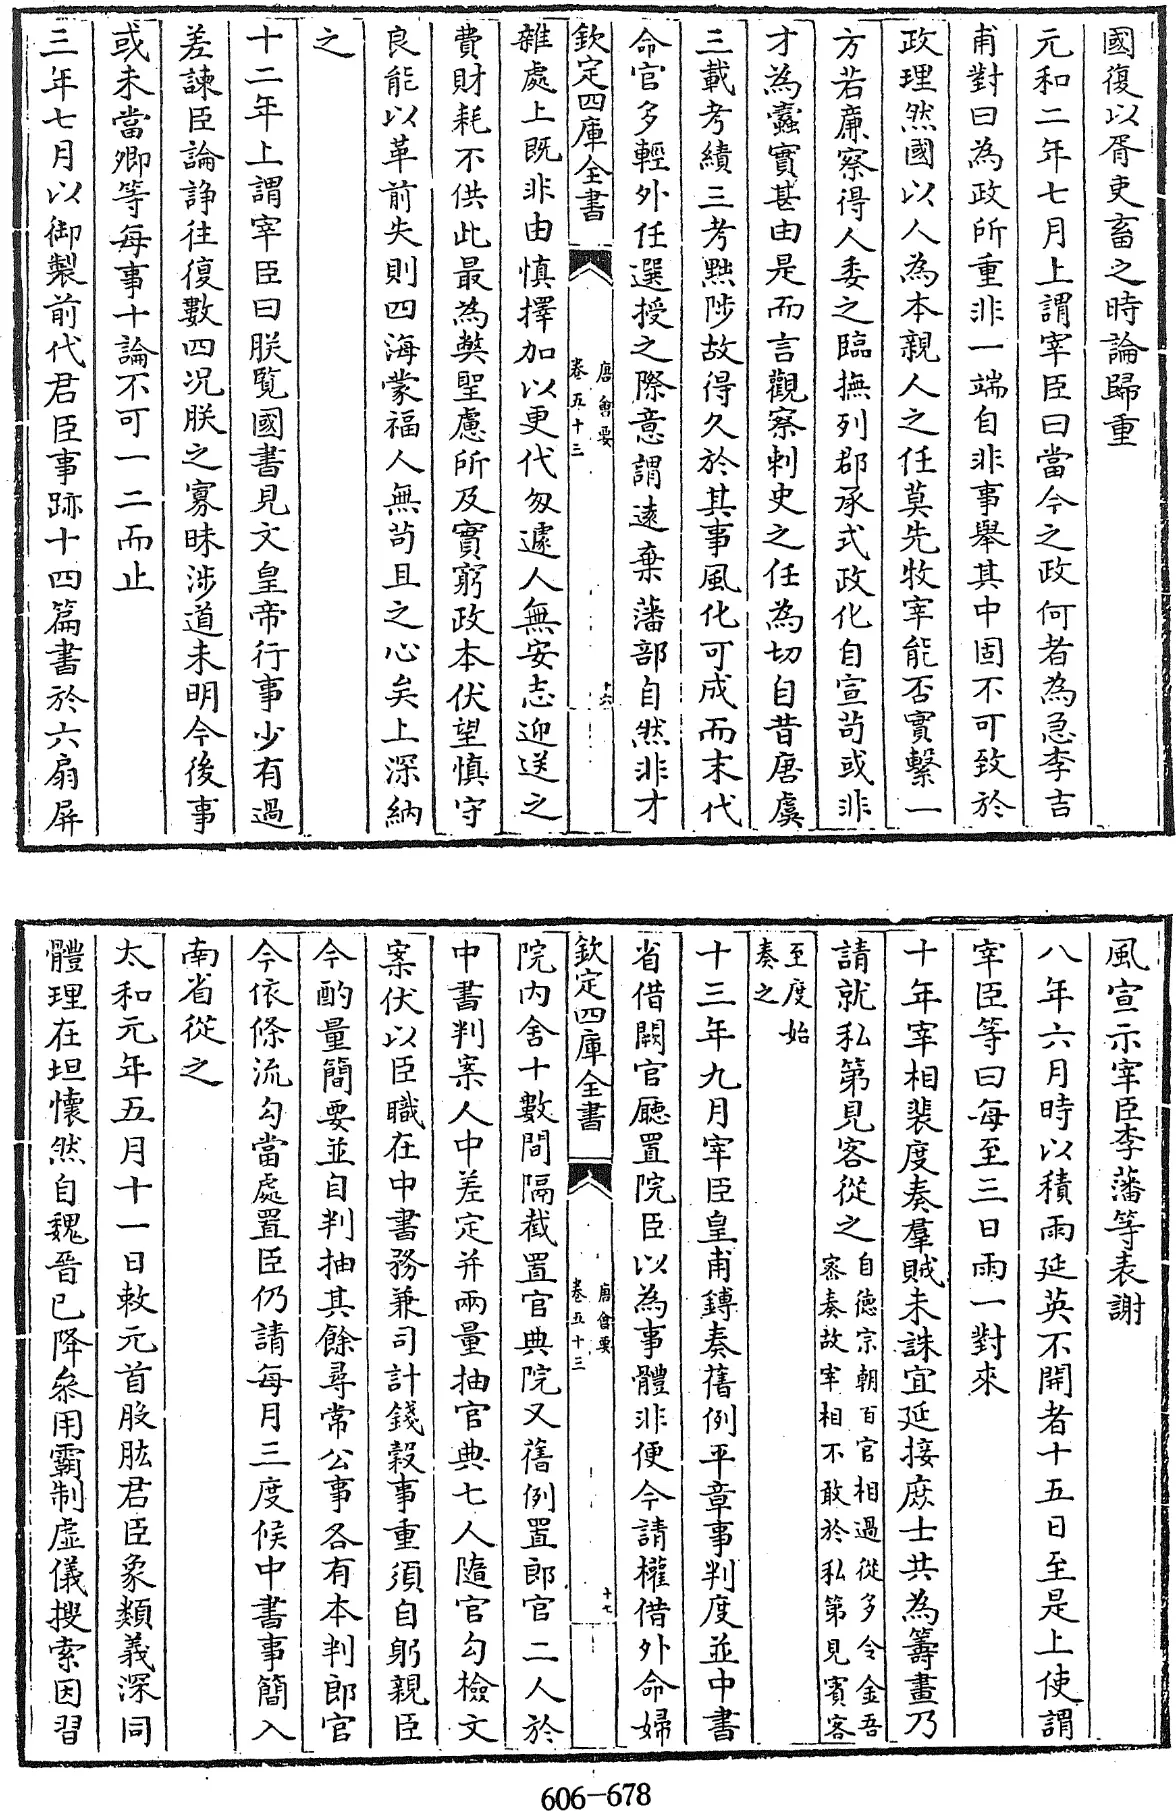 國復以胥吏畜之時論歸重
元和二年七月上謂宰臣曰當今之政何者為急李吉
甫對曰為政所重非一端自非事舉其中固不可致於
政理然國以人為本親人之任莫先牧宰能否實繫一
方若廉察得人委之臨撫列郡承式政化自宣苟或非
才為蠹實甚由是而言觀察刺史之任為切自昔唐虞
三載考績三考黜陟故得久於其事風化可成而末代
命官多輕外任選授之際意謂遠棄藩部自然非才
欽定四庫全書
唐會要
卷五十三
十六
雜處上既非由慎擇加以更代匆遽人無安志迎送之
費財耗不供此最為獘聖慮所及實窮政本伏望慎守
良能以革前失則四海蒙福人無苟且之心矣上深納
之
十二年上謂宰臣曰朕覽國書見文皇帝行事少有過
差諫臣論諍往復數四况朕之寡昧涉道未明今後事
或未當卿等每事十論不可一二而止
三年七月以御製前代君臣事跡十四篇書於六扇屏
風宣示宰臣李藩等表謝
八年六月時以積雨延英不開者十五日至是上使謂
宰臣等曰每至三日雨一對來
十年宰相裴度奏羣賊未誅宜延接庶士共為籌畫乃
請就私第見客從之自德宗朝百官相過從多令金吾
宻奏故宰相不敢於私第見賓客
至度始
奏之
十三年九月宰臣皇甫鎛奏舊例平章事判度並中書
省借闕官廳置院臣以為事體非便今請權借外命婦
欽定四庫全書
唐會要
卷五十三
十七
院内舍十數間隔截置官典院又舊例置郎官二人於
中書判案人中差定并兩量抽官典七人隨官勾檢文
案伏以臣職在中書務兼司計錢穀事重須自躬親臣
今酌量簡要並自判抽其餘尋常公事各有本判郎官
今依條流勾當處置臣仍請每月三度候中書事簡入
南省從之
太和元年五月十一日敕元首股肱君臣象類義深同
體理在坦懷然自魏晉已降叅用霸制虚儀搜索因習
606－678